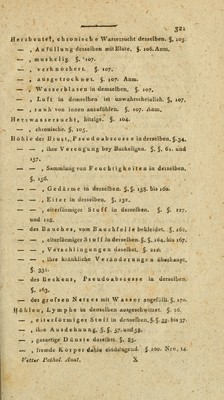 321
Herzbeutel, chronische Wassersucht desselben. §. 105.
— — , Anfüllung desselben mit Blute. §. 106. Anm.
— — , muskelig. §. 107.
— — , verknöchert. §. 107.
— — , ausgetrocknet. §. 107. Anm.
— — , Wasserblasen in demselben. §. 107.
— — , Luft in demselben ist unwahrscheinlich. §. 107.
— — , rauh von innen anzufühlen. §. 107. Anm.
Herzwassersucht, hitzige. §. 104.
— — , chronische. §. 105.
Höhle der Brust, Pseudoabscesse in derselben. §. 34.
— — , ihre Verengung bey Buckeligen. §. §. 61. und
137.
— — , Sammlung von Feuchtigkeiten in derselben.
§. 136.
— — , Gedärme in derselben. §. §. 158. bis 160.
— — , Eiter in derselben. §. 131.
— — , eiterförmiger Stoff in derselben. §. §. 127.
und 128.
— des Bauches, vom Bauchfelle bekleidet. §. 161.
— — , eiterförmiger Stoff in derselben. §. §. 164. bis 167.
— — , Verschlingungen daselbst. §. 210.
— — , ihre kränkliche Veränderungen überhaupt.
§. 331.
— des Beckens, Pseudoabscesse in derselben.
§. 263.
— des großen Netzes mit Wasser angefüllt. §. 170.
Höhlen, Lymphe in denselben ausgeschwitzt. §. 16.
— — , eiterförmiger Stoff in denselben. §. §. 33. bis 37.
— — , ihre Ausdehnung. §. §. 57. und 58.
— — , gasartige Dünste daselbst. §. 83.
— — , fremde Körper dahin eindringend. §. 100. Nro. 14.
Vetter Pathol. Anat. X